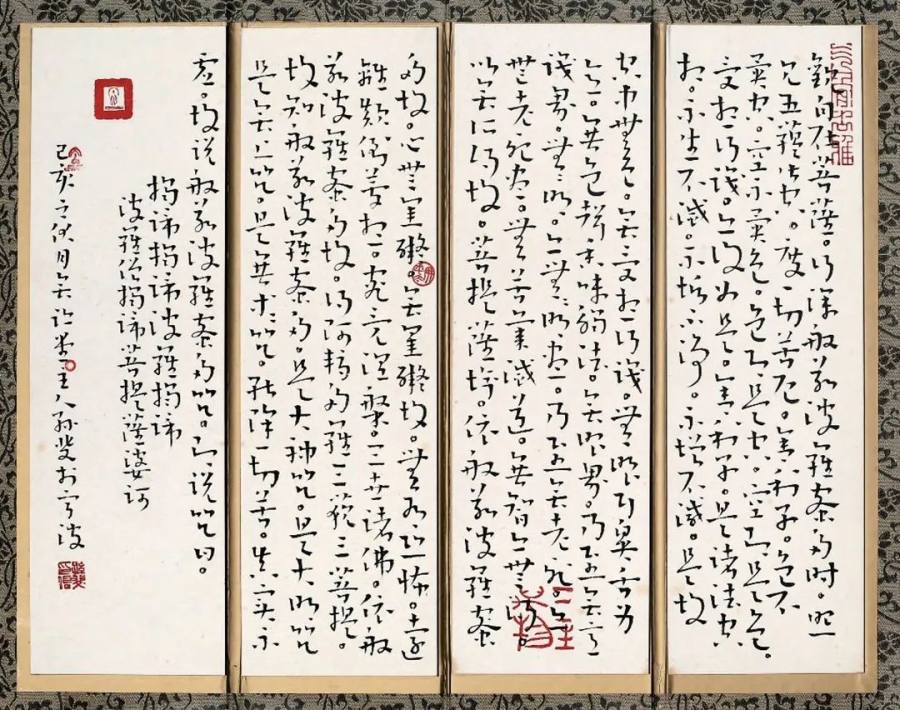 觀自在菩薩。行深般若波羅蜜多時。照
見五蘊皆空。度一切苦厄。舍利子。色不
異空。空不異色。色即是空。空即是色。
受想行識。亦復如是。舍利子。是諸法空
相。不生不滅。不垢不淨。不增不減。是故
空中無色。無受想行識。無眼耳鼻舌身
意。無色聲香味觸法。無眼界。乃至無意
識界。無無明。亦無無明盡。乃至無老死。亦
無老死盡。無苦集滅道。無智亦無得。
以無所得故。菩提薩埵。依般若波羅蜜
多故。心無罣礙。無罣礙故。無有恐怖。遠
離顛倒夢想。究竟涅槃。三世諸佛。依般
若波羅蜜多故。得阿耨多羅三藐三菩提。
故知般若波羅蜜多。是大神咒。是大明咒
是無上咒。是無等等咒。能除一切苦。真實不
虛。故說般若波羅蜜多咒。即說咒曰。
揭諦揭諦波羅揭諦
波羅僧揭諦菩提薩婆訶
己亥月主人孫於寧波